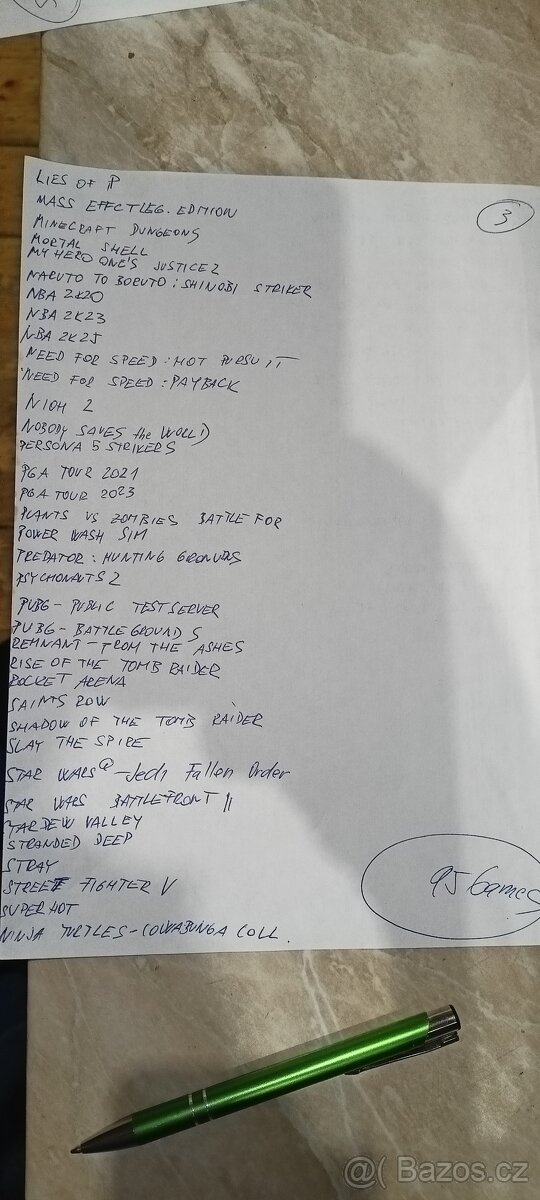 LIES OF P
3
MASS EFFECT LEG. EDITION
MINECRAFT DUNGEONS
MORTAL SHELL
MY HERO ONE'S JUSTICE 2
NARUTO TO BORUTO : SHINOBI STRIKER
NBA 2K20
NBA 2K23
NBA 2K25
NEED FOR SPEED : HOT PURSUIT
NEED FOR SPEED : PAYBACK
NIOH 2
NOBODY SAVES the WORLD
PERSONA 5 STRIKERS
PGA TOUR 2021
PGA TOUR 2023
PLANTS VS ZOMBIES BATTLE FOR
POWER WASH SIM
PREDATOR : HUNTING GROUNDS
PSYCHONAUTS 2
PUBG - PUBLIC TEST SERVER
PUBG - BATTLEGROUNDS
REMNANT - FROM THE ASHES
RISE OF THE TOMB RAIDER
ROCKET ARENA
SAINTS ROW
SHADOW OF THE TOMB RAIDER
SLAY THE SPIRE
STAR WARS @ - Jedi Fallen Order
STAR WARS BATTLEFRONT II
STARDEW VALLEY
STRANDED DEEP
STRAY
STREET FIGHTER V
95 Games
SUPERHOT
NINJA TURTLES - COWABUNGA COLL.
@( Bazos.cz